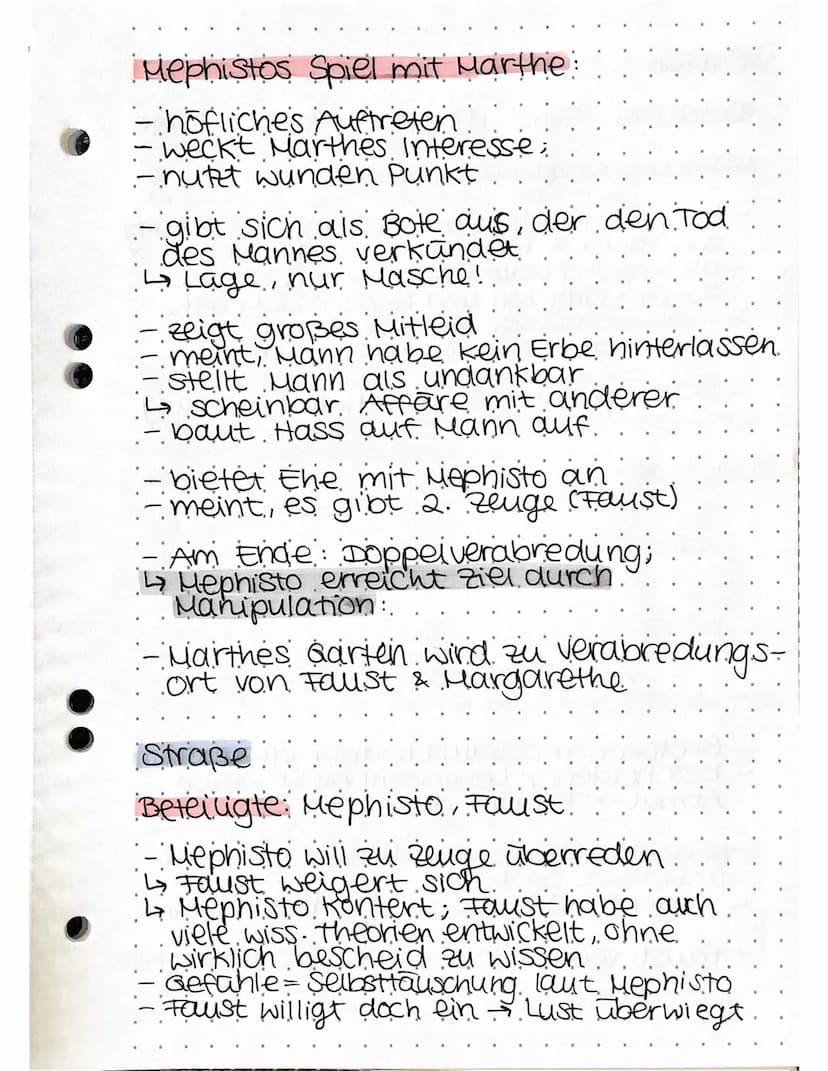 Mephistos Spiel mit Marthe:
- höfliches Auftreten
- weckt Marthes Interesse;
- nutzt wunden Punkt
- gibt sich als Bote aus, der den Tod
des Mannes verkündet
↳ Lüge, nur Masche!
- zeigt großes Mitleid
- meint, Mann habe kein Erbe hinterlassen
- stellt Mann als undankbar
↳ scheinbar Affäre mit anderer
- baut Hass auf Mann auf
- bietet Ehe mit Mephisto an
- meint, es gibt 2. Zeuge (Faust)
- Am Ende: Doppelverabredung;
↳ Mephisto erreicht Ziel durch
Manipulation:
- Marthes Garten wird zu Verabredungs-
ort von Faust & Margarethe
Straße
Beteiligte: Mephisto, Faust
- Mephisto will zu Zeuge überreden
↳ Faust weigert sich
↳ Mephisto kontert; Faust habe auch
viele wiss. Theorien entwickelt, ohne
wirklich bescheid zu wissen
- Gefühle = Selbsttäuschung laut Mephisto
- Faust willigt doch ein → Lust überwiegt